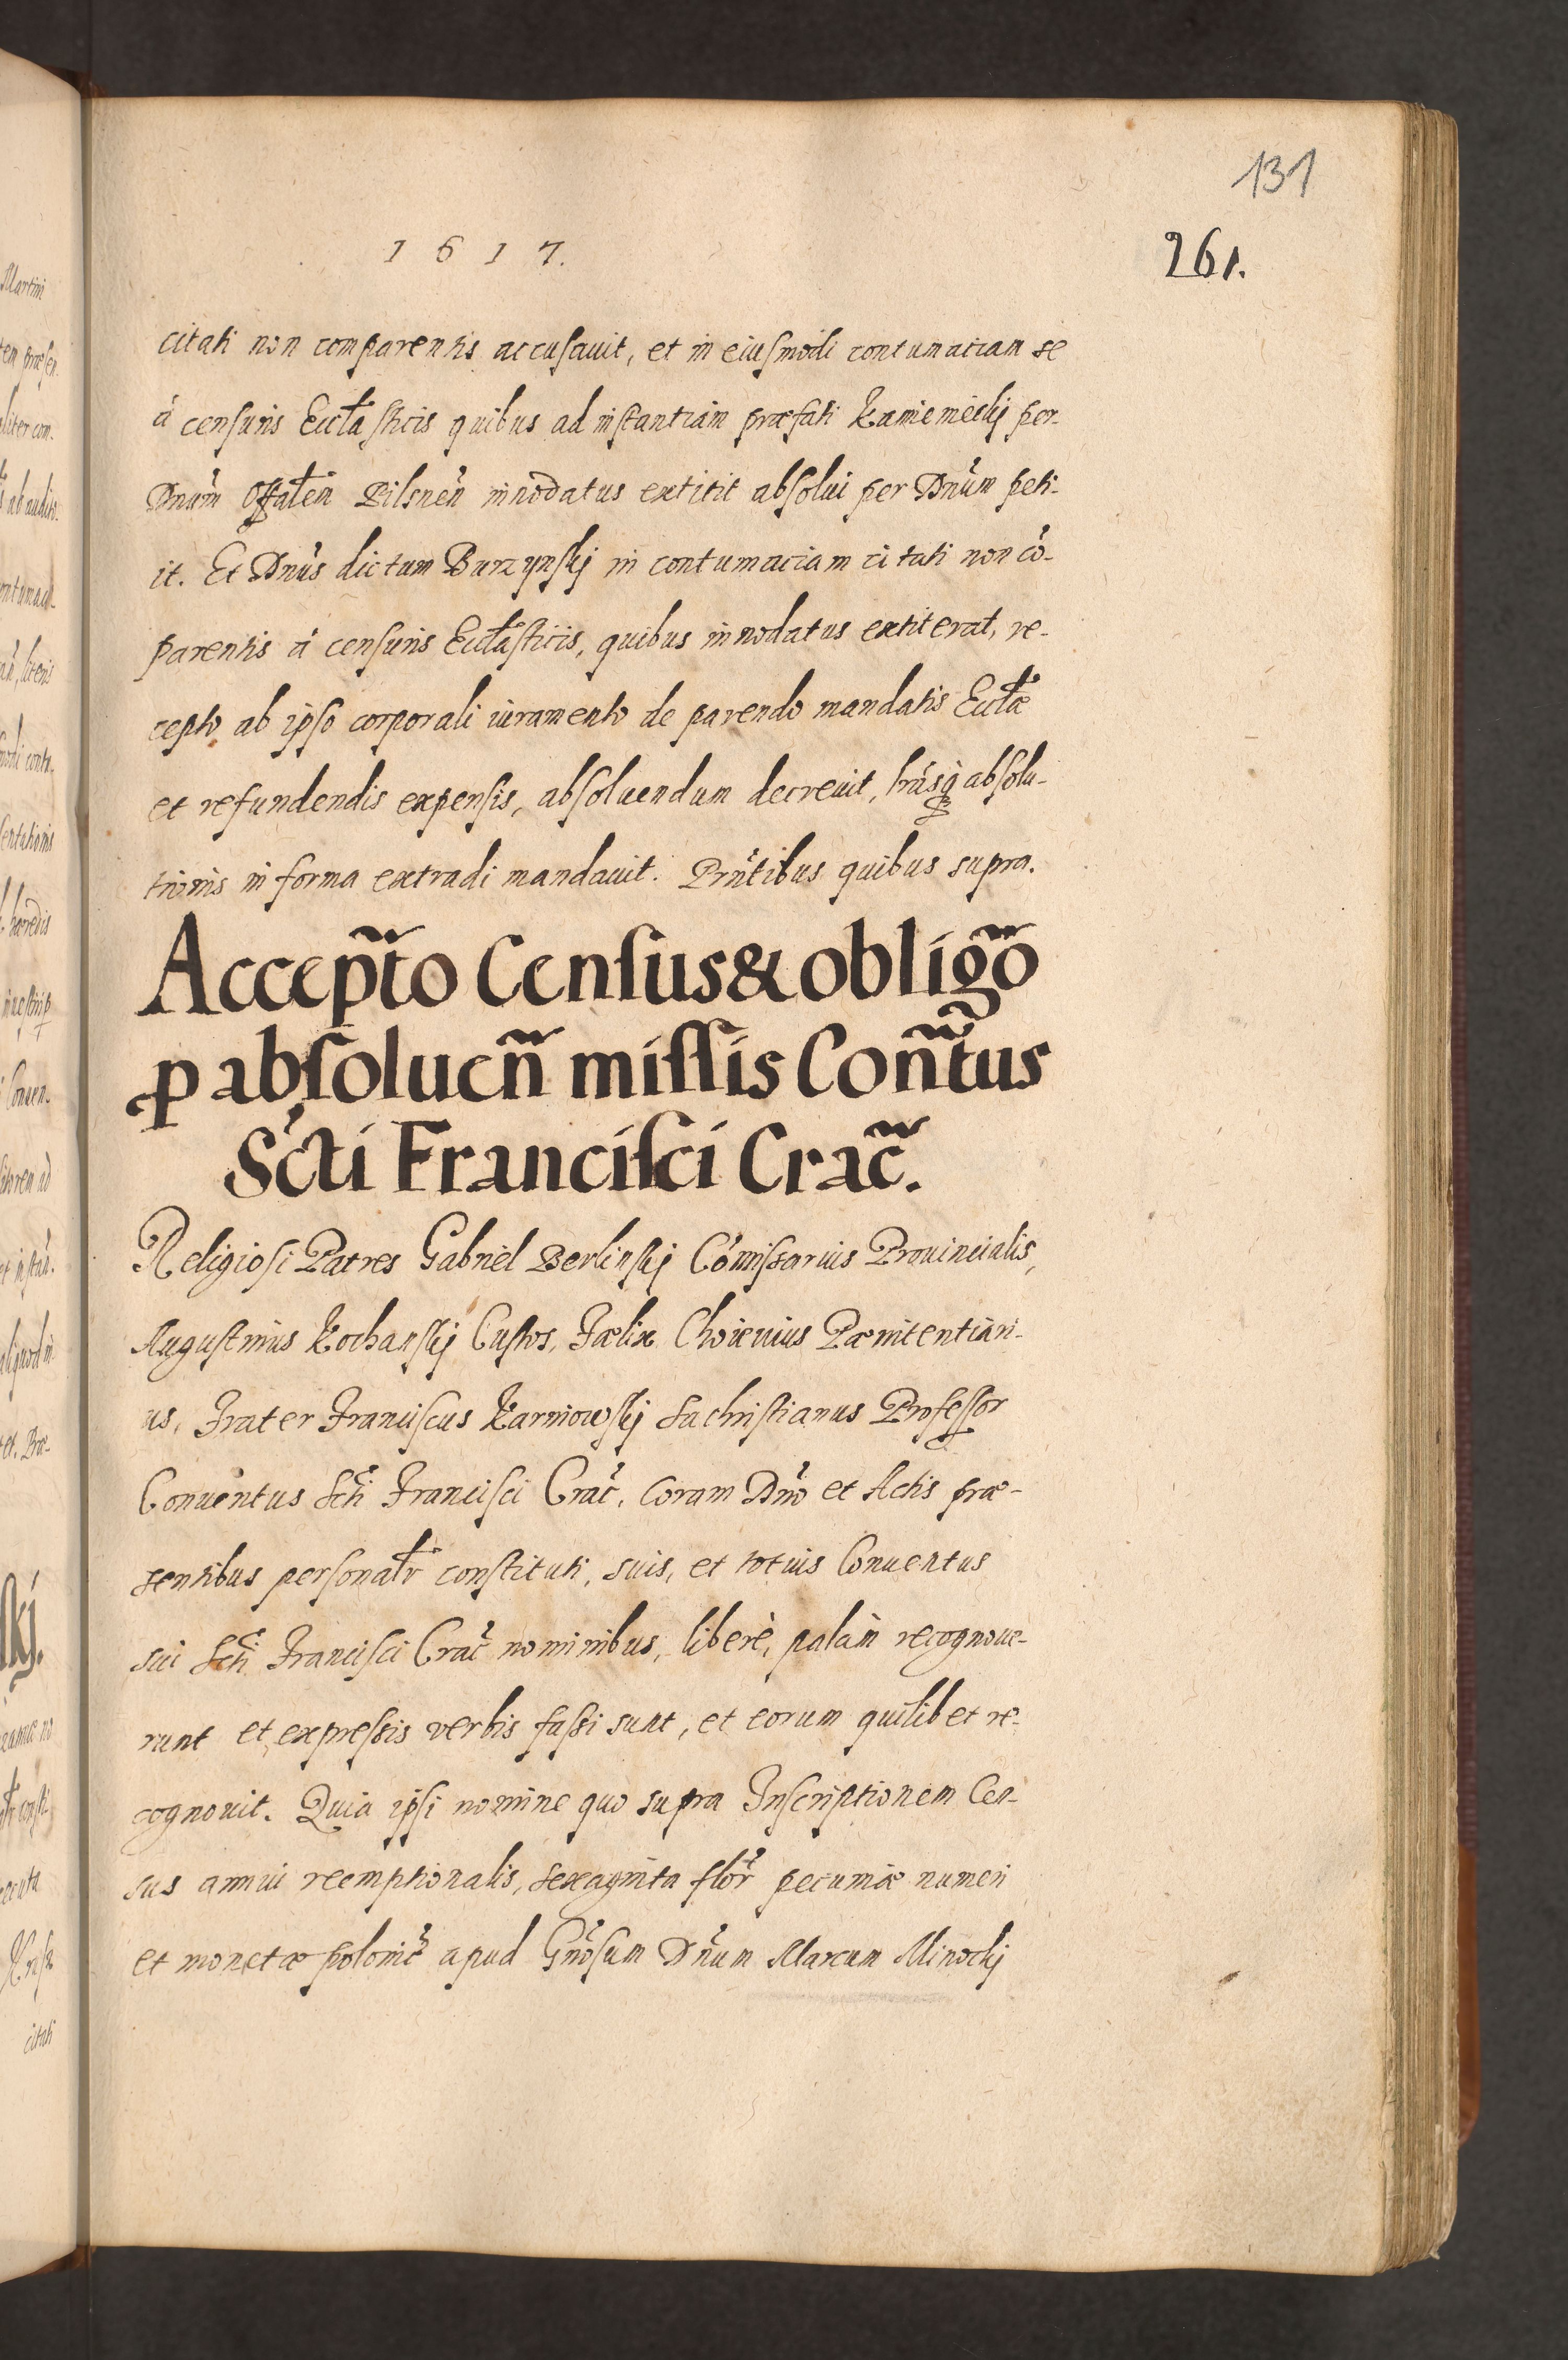 131
1617.
261.
citati non comparentis accusauit, et in eiusmodi contumaciam se
à censuris Eccl̃asticis quibus ad instantiam præfati Kamienieckj per-
Dnum̃ Offalem̃ Pilsneñ innodatus extitit absolui per Dnũm peti-
it. Et Dnũs dictum Burzynskj in contumaciam citati non cõ-
parentis à censuris Eccl̃asticis, quibus innodatus extiterat, re-
cepto ab ipso corporali iuramento de parendo mandatis Eccl̃æ
et refundendis expensis, absoluendum decreuit, lr̃asq́ absolu-
tionis in forma extradi mandauit. Prñtibus quibus supra.
Accep̃to Censius & obligõ
p absolucñ missis Coñtus
Scti Francisci Crac̃.
Religiosi Patres Gabriel Berlinskj Cõmissarius Prouincialis,
Augustinus Kochanskj Custos, Fælix Choieuius Pœnitentiari-
us, Frater Franciscus Karniowskj Sachristianus Professor
Conuentus Scti Francisci Crac̃, Coram Dnõ et Actis præ-
sentibus personalr̃ constituti, suis, et totius Conuentus
sui Scti Francisci Crac̃ nominibus, liberè, palàm recognoue-
runt et expressis verbis fassi sunt, et eorum quilibet re-
cognouit. Quia ipsi nomine quo supra Inscriptionem Cen-
sus annui reemptionalis, sexaginta flor̃ pecuniæ numeri
et monetæ polonic̃ apud Gnõsum Dnũm Marcum Minockj